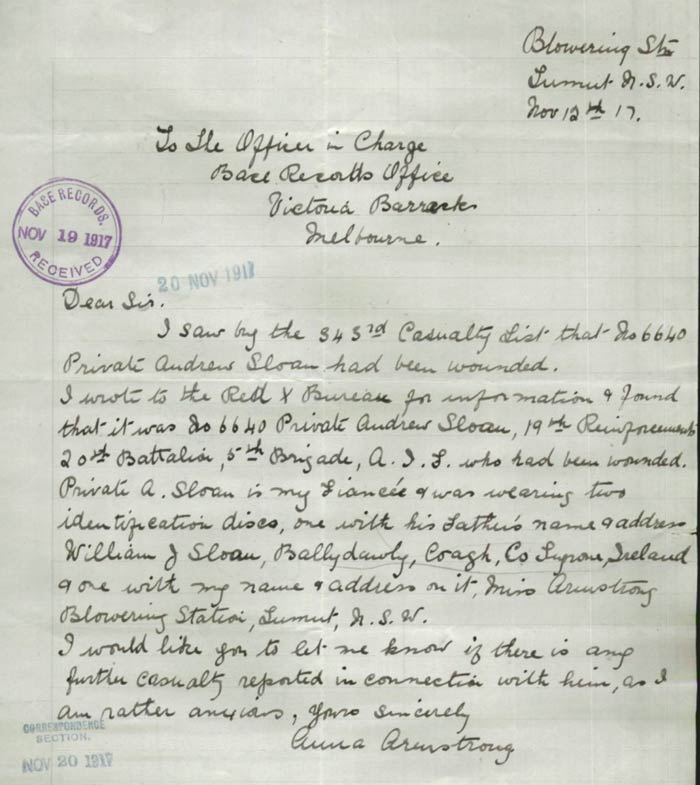 Blowering Stn
Tumut N.S.W.
Nov 12th 17.
To The Officer in Charge
Base Records Office
Victoria Barracks
Melbourne.
BASE RECORDS.
NOV 19 1917
RECEIVED
20 NOV 1917
Dear Sir.
I saw by the 343rd Casualty List that No 6640
Private Andrew Sloan had been wounded.
I wrote to the Red X Bureau for information & found
that it was No 6640 Private Andrew Sloan, 19th Reinforcements
20th Battalion, 5th Brigade, A.I.F. who had been wounded.
Private A. Sloan is my Fiancée & was wearing two
identification discs, one with his Father's name & address
William J Sloan, Ballydawly, Coagh, Co Tyrone, Ireland
& one with my name & address on it, Miss Armstrong
Blowering Station, Tumut, N.S.W.
I would like you to let me know if there is any
further casualty reported in connection with him, as I
am rather anxious, Yours sincerely
Anna Armstrong
CORRESPONDENCE
SECTION.
NOV 20 1917